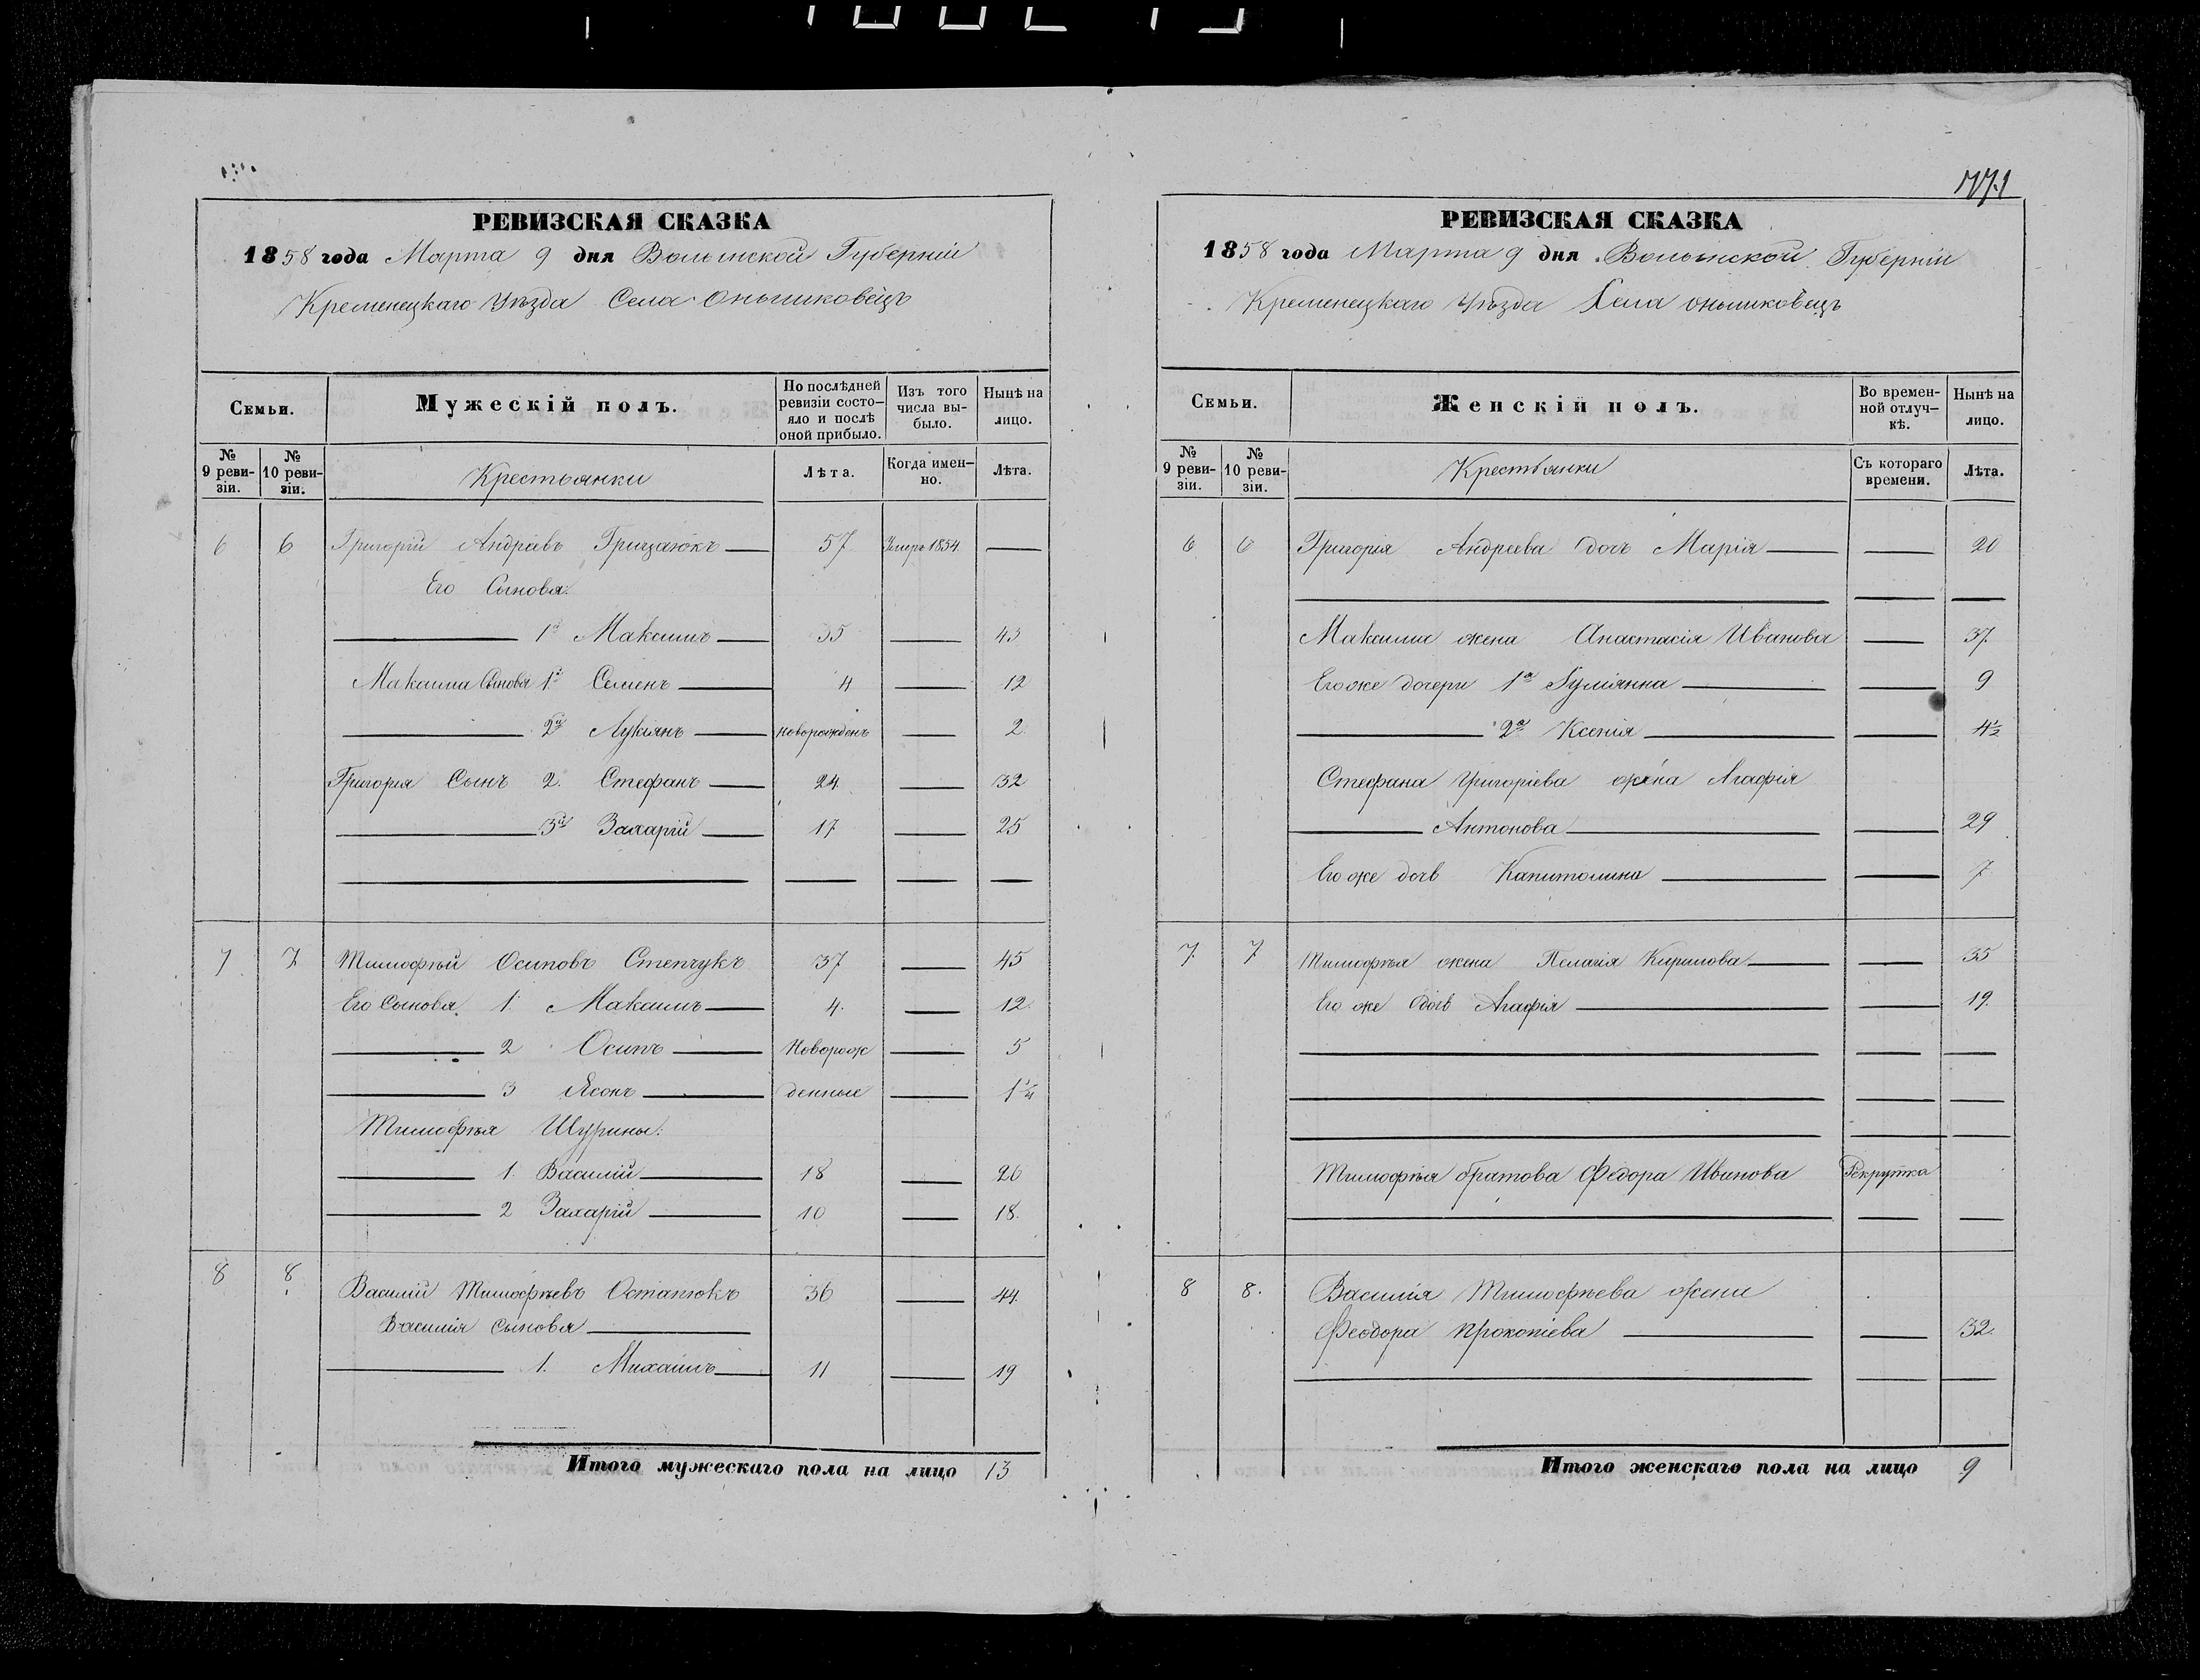 РЕВИЗСКАЯ СКАЗКА
1858 года Марта 9 дня Волынской Губерніи
Кременецкаго Уѣзда Села Онышковецъ
Семьи.
Мужескій полъ.
По послѣдней ревизіи состояло и послѣ оной прибыло.
Изъ того числа выбыло.
Нынѣ на лицо.
№ 9 ревизіи.
№ 10 ревизіи.
Крестьянки
Лѣта.
Когда именно.
Лѣта.
6 6 Григорій Андрѣевъ Грицаюкъ 57 Умеръ 1854
Его Сыновья:
1й Максимъ 35 43
Максима Сыновья 1й Семенъ 4 12
2й Лукіянъ новорожденъ 2
Григорія Сынъ 2. Стефанъ 24. 32
3й Захарій 17 25
7 7 Тимофѣй Осиповъ Степчукъ 37 45
Его Сыновья 1. Максимъ 4. 12.
2 Осипъ Новорож 5
3 Ясонъ денные 1¼
Тимофѣя Шурины:
1. Василій 18 26
2 Захарій 10 18.
8 8 Василій Тимофѣевъ Остапюкъ 36 44
Василія сыновья
1. Михаилъ 11 19
Итого мужескаго пола на лицо 13
771
РЕВИЗСКАЯ СКАЗКА
1858 года Марта 9 дня Волынской Губерніи
Кременецкаго Уѣзда Села Онышковецъ
Семьи.
Женскій полъ.
Во временной отлучкѣ.
Нынѣ на лицо.
№ 9 ревизіи.
№ 10 ревизіи.
Крестьянки
Съ котораго времени.
Лѣта.
6 6 Григорія Андреева дочь Марія 20
Максима жена Анастасія Иванова 37.
Его же дочери 1я Гуліянна 9
2я Ксенія 4½
Стефана Григоріева жена Агафія
Антонова 29
Его же дочь Капитолина 7
7 7 Тимофѣя жена Пелагія Кирилова 35
Его же дочь Агафія 19.
Тимофѣя братова Федора Иванова Рекрутка
8 8. Василія Тимофѣева жена
Феодора Прокопіева 32.
Итого женскаго пола на лицо 9